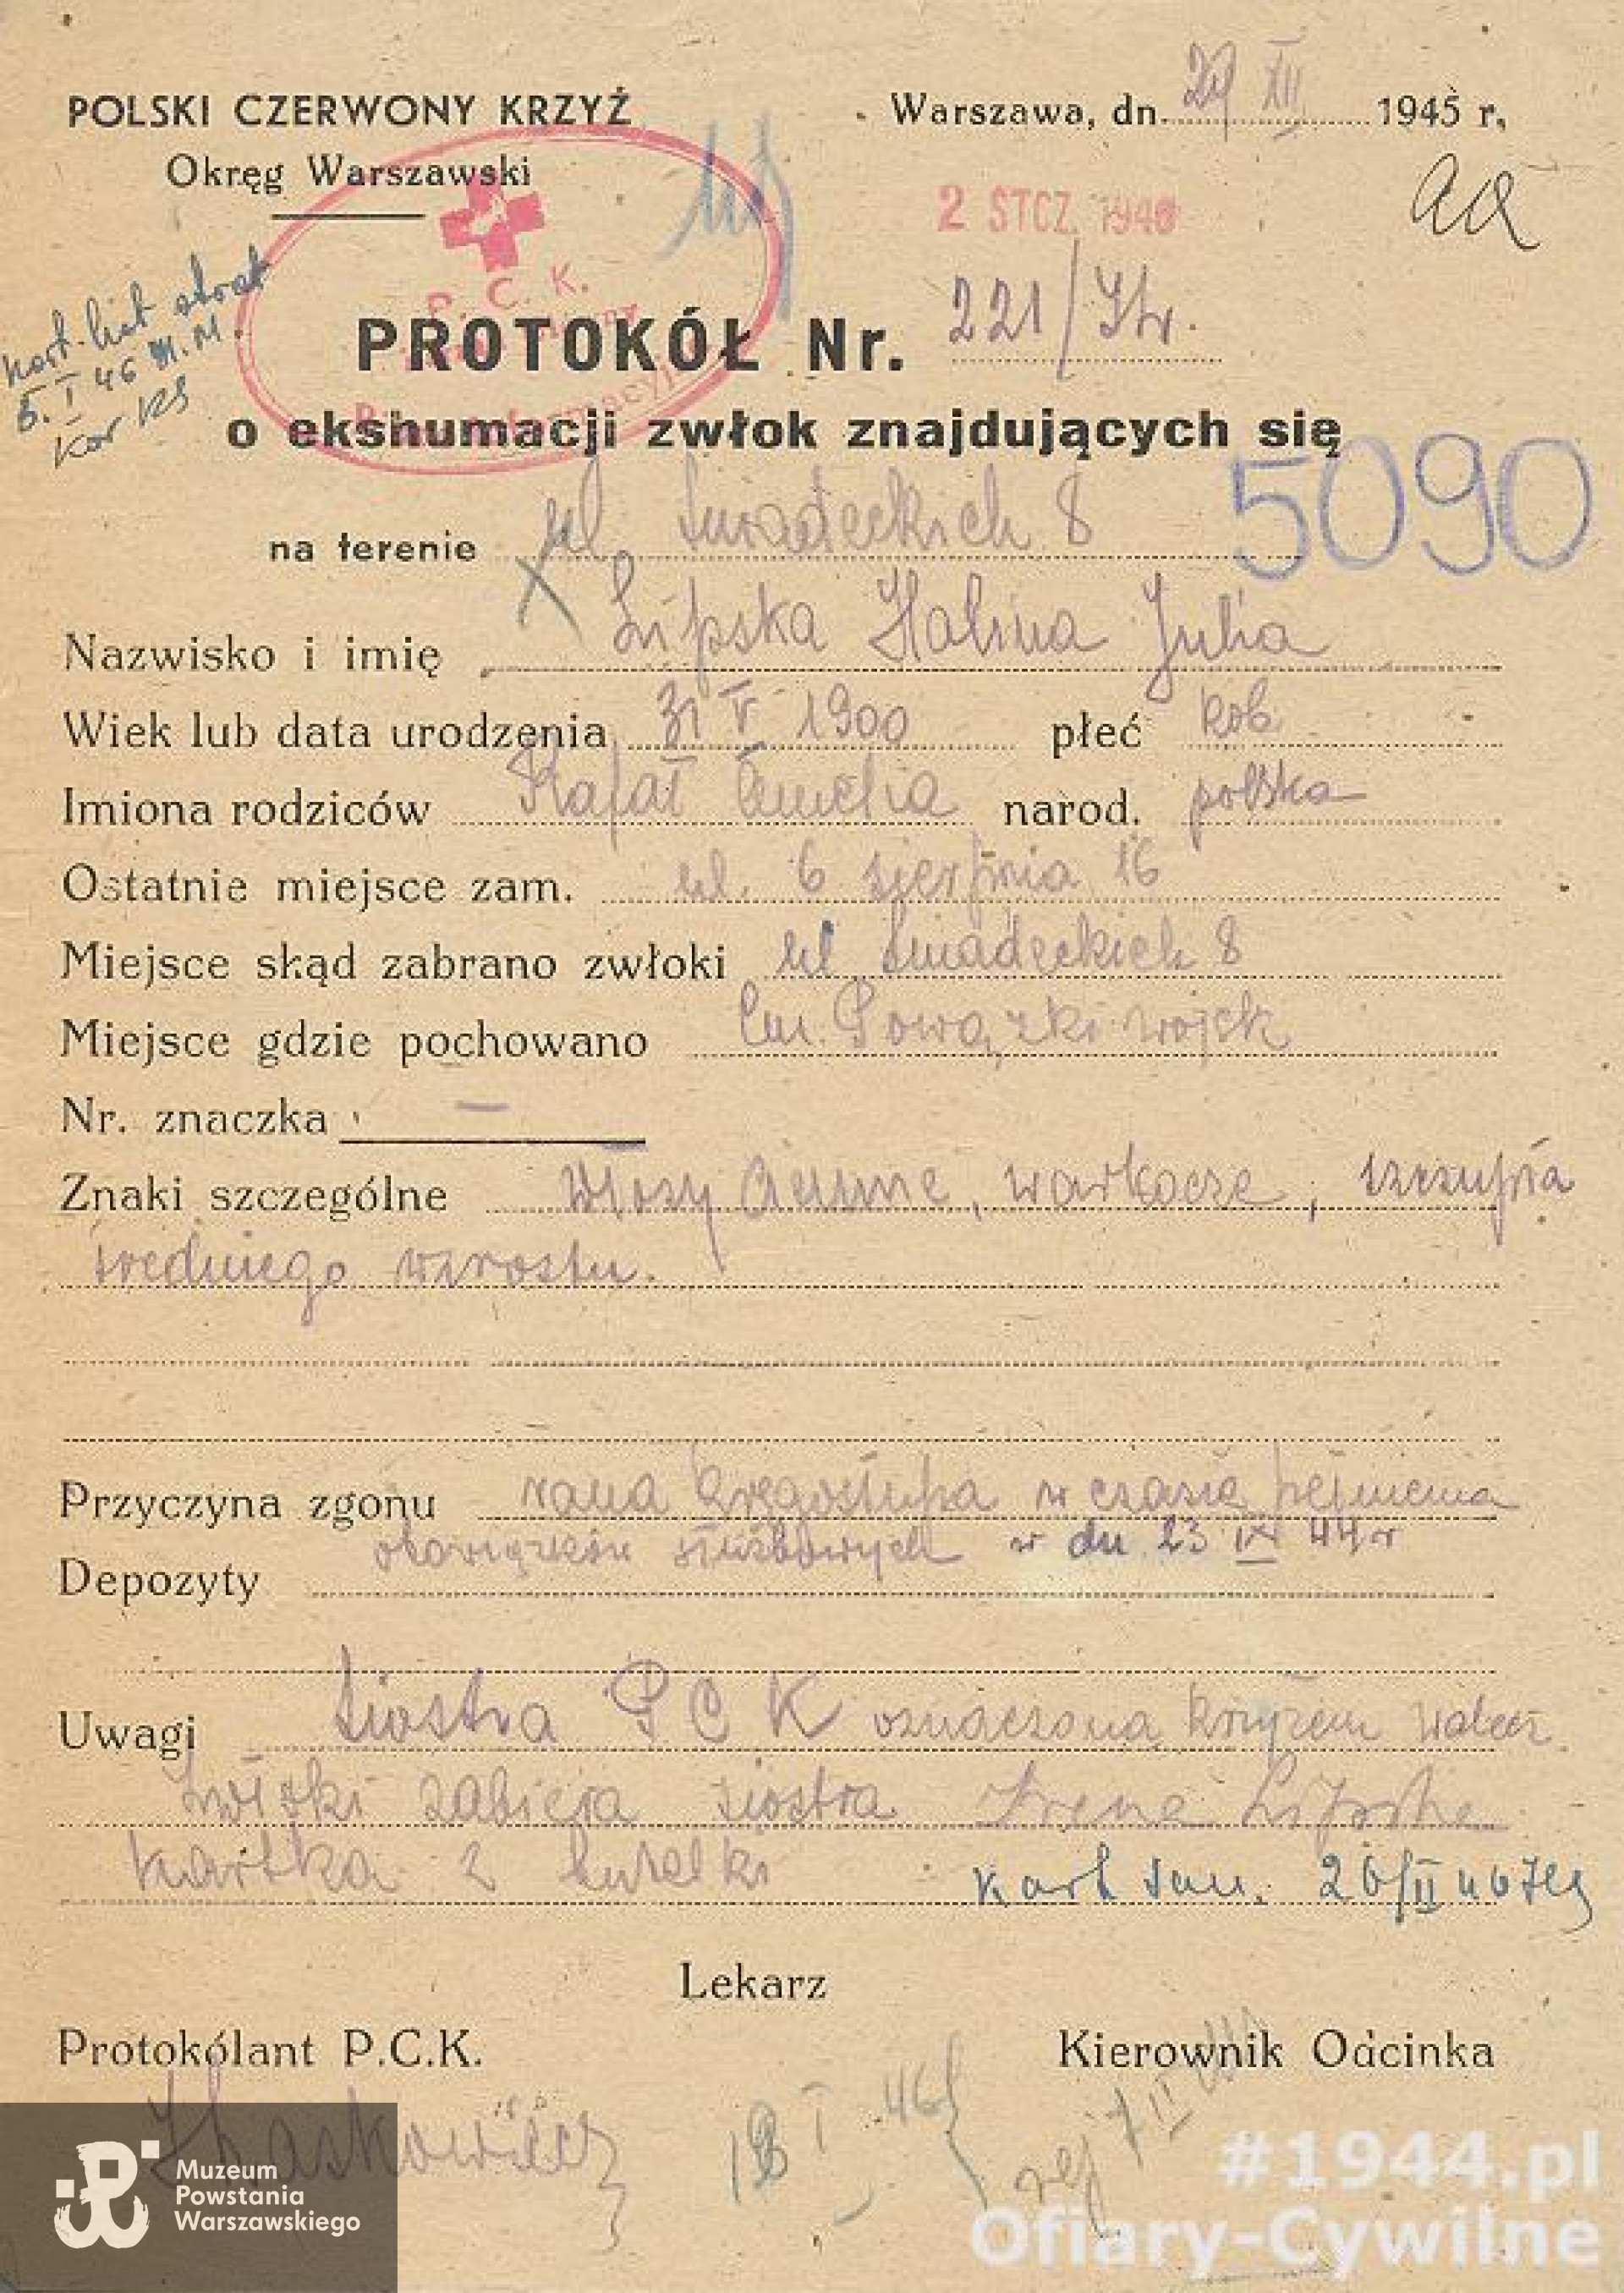 POLSKI CZERWONY KRZYŻ
Okręg Warszawski
Warszawa, dn. 29 XII 1945 r.
2 STCZ. 1946
aa
P. C. K.
kart. list strat
5. I 46 M.M.
Kor KS
PROTOKÓŁ Nr. 221/
o ekshumacji zwłok znajdujących się
5090
na terenie ul. Śniadeckich 8
Nazwisko i imię Lipska Halina Julia
Wiek lub data urodzenia 31 V 1900 płeć kob.
Imiona rodziców Rafał Amelia narod. polska
Ostatnie miejsce zam. ul. 6 sierpnia 16
Miejsce skąd zabrano zwłoki ul Śniadeckich 8
Miejsce gdzie pochowano Cm. Powązki wojsk
Nr. znaczka —
Znaki szczególne włosy ciemne, warkocze, szczupła
średniego wzrostu.
Przyczyna zgonu rana kręgosłupa w czasie pełnienia
obowiązków służbowych w dn. 23 IX 44 r
Depozyty
Uwagi Siostra P C K oznaczona krzyżem walecz
Zwłoki zabiera siostra Irena Lipska
kartka z butelki
Kart san. 26/II 46
Lekarz
Protokólant P.C.K.
Kierownik Odcinka
18 I 46
rej 7 II
Muzeum
Powstania
Warszawskiego
#1944.pl
Ofiary-Cywilne